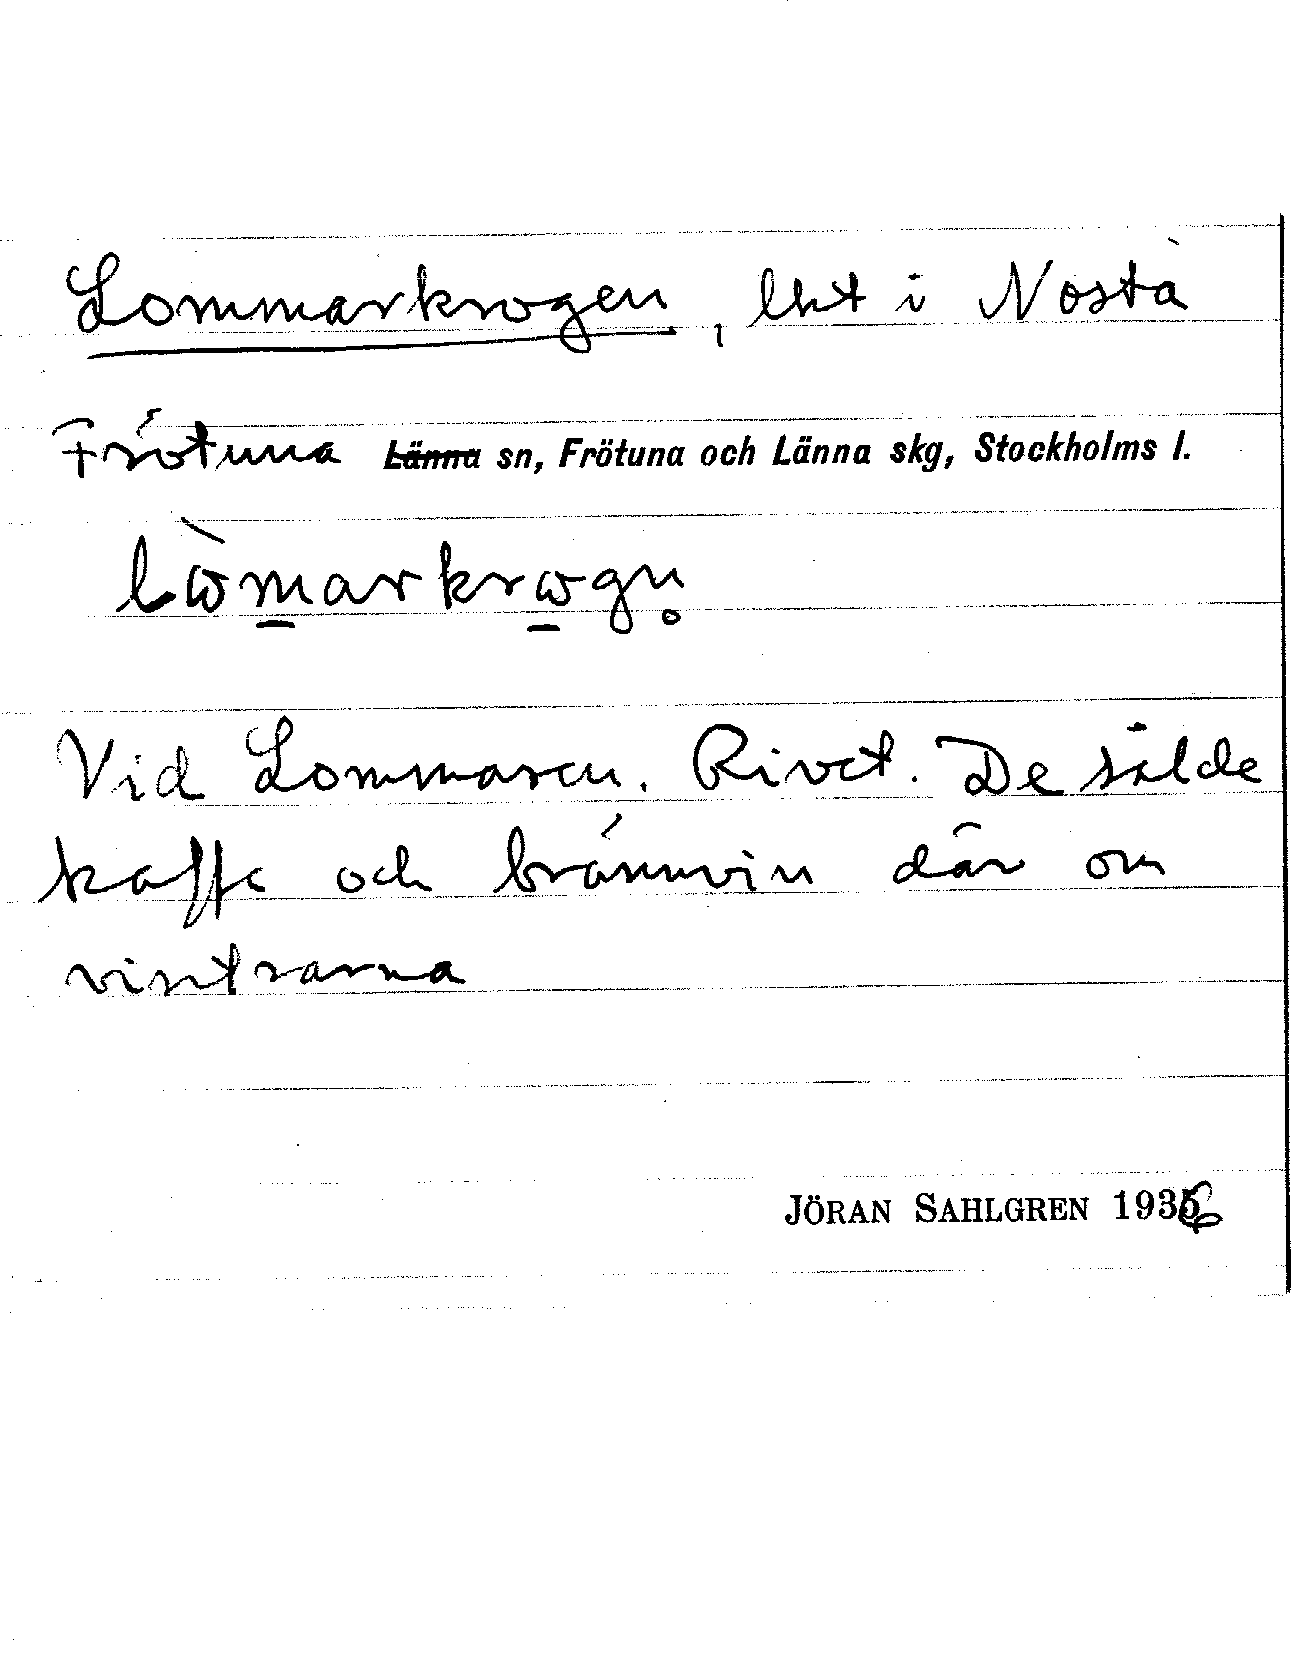 Lommarkrogen, lht i Nösta
Frötuna Länna sn, Frötuna och Länna skg, Stockholms l.
Vid Lommaren. Rivet. De sålde
kaffe och brännvin där om
vintrarna
JÖRAN SAHLGREN 1936